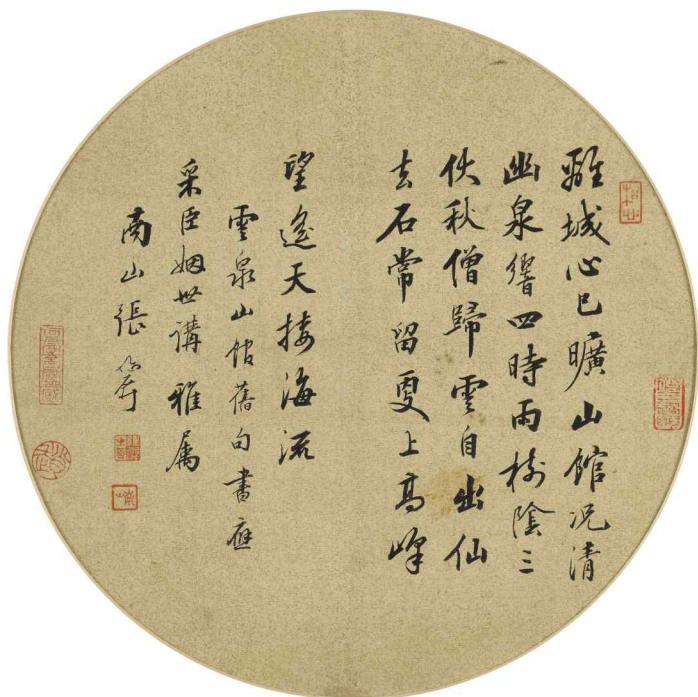 離城心已曠山館况清
幽泉響四時雨樹陰三
伏秋僧歸雲自出仙
去石常留更上高峰
望遙天接海流
雲泉山館舊句書應
采臣姻世講雅属
南山張維屏